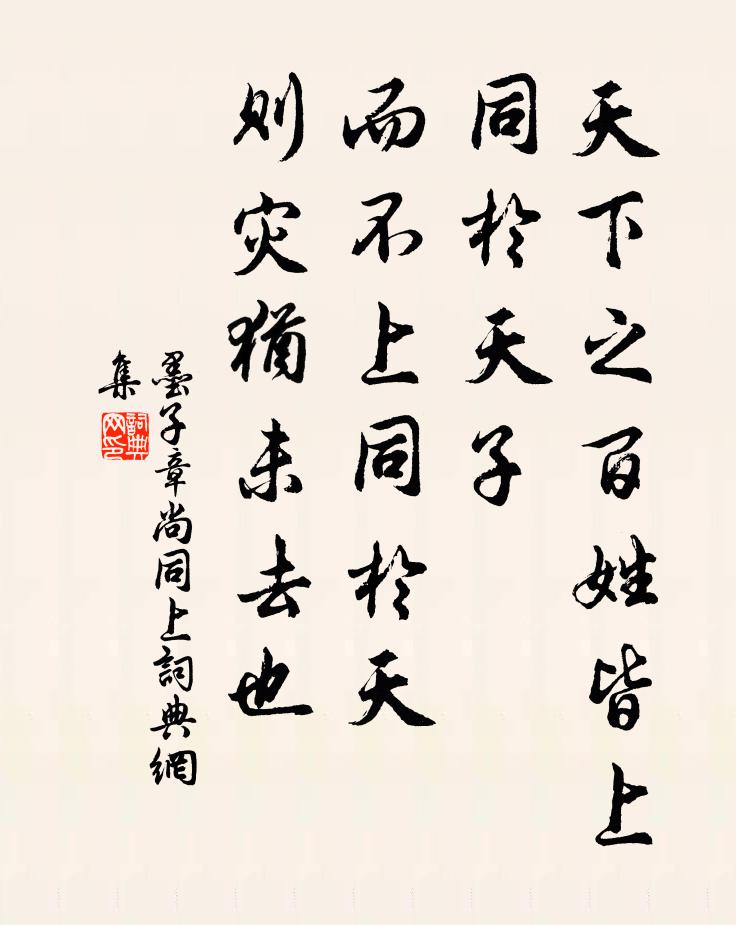 天下之百姓皆上
同於天子
而不上同於天
则灾猶未去也
墨子章尚同上詞典網
集
詞典
网印